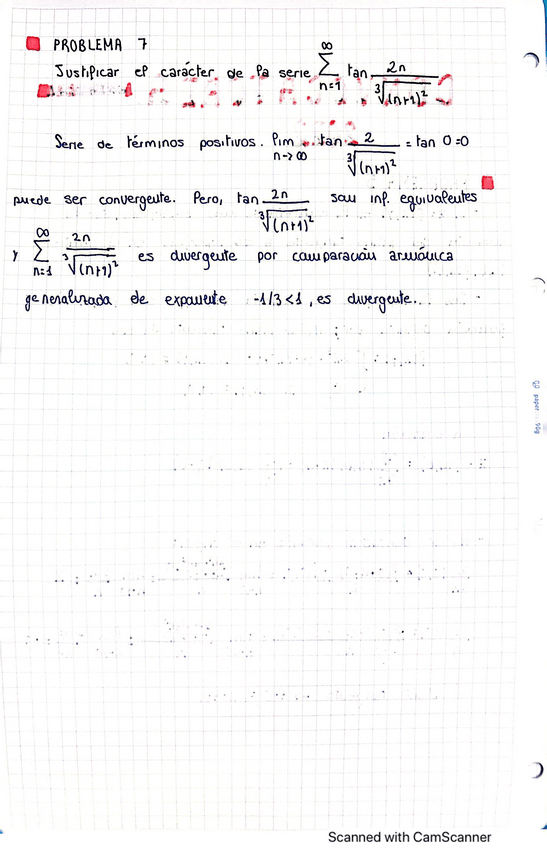 PROBLEMA 7
Justificar el carácter de la serie ∑_{n=1}^{∞} tan 2n/∛(n+1)²
Serie de términos positivos. lim_{n->∞} tan 2/∛(n+1)² = tan 0 = 0
puede ser convergente. Pero, tan 2n/∛(n+1)² son inf. equivalentes
y ∑_{n=1}^{∞} 2n/∛(n+1)² es divergente por comparación armónica
generalizada de exponente -1/3<1, es divergente.
Scanned with CamScanner